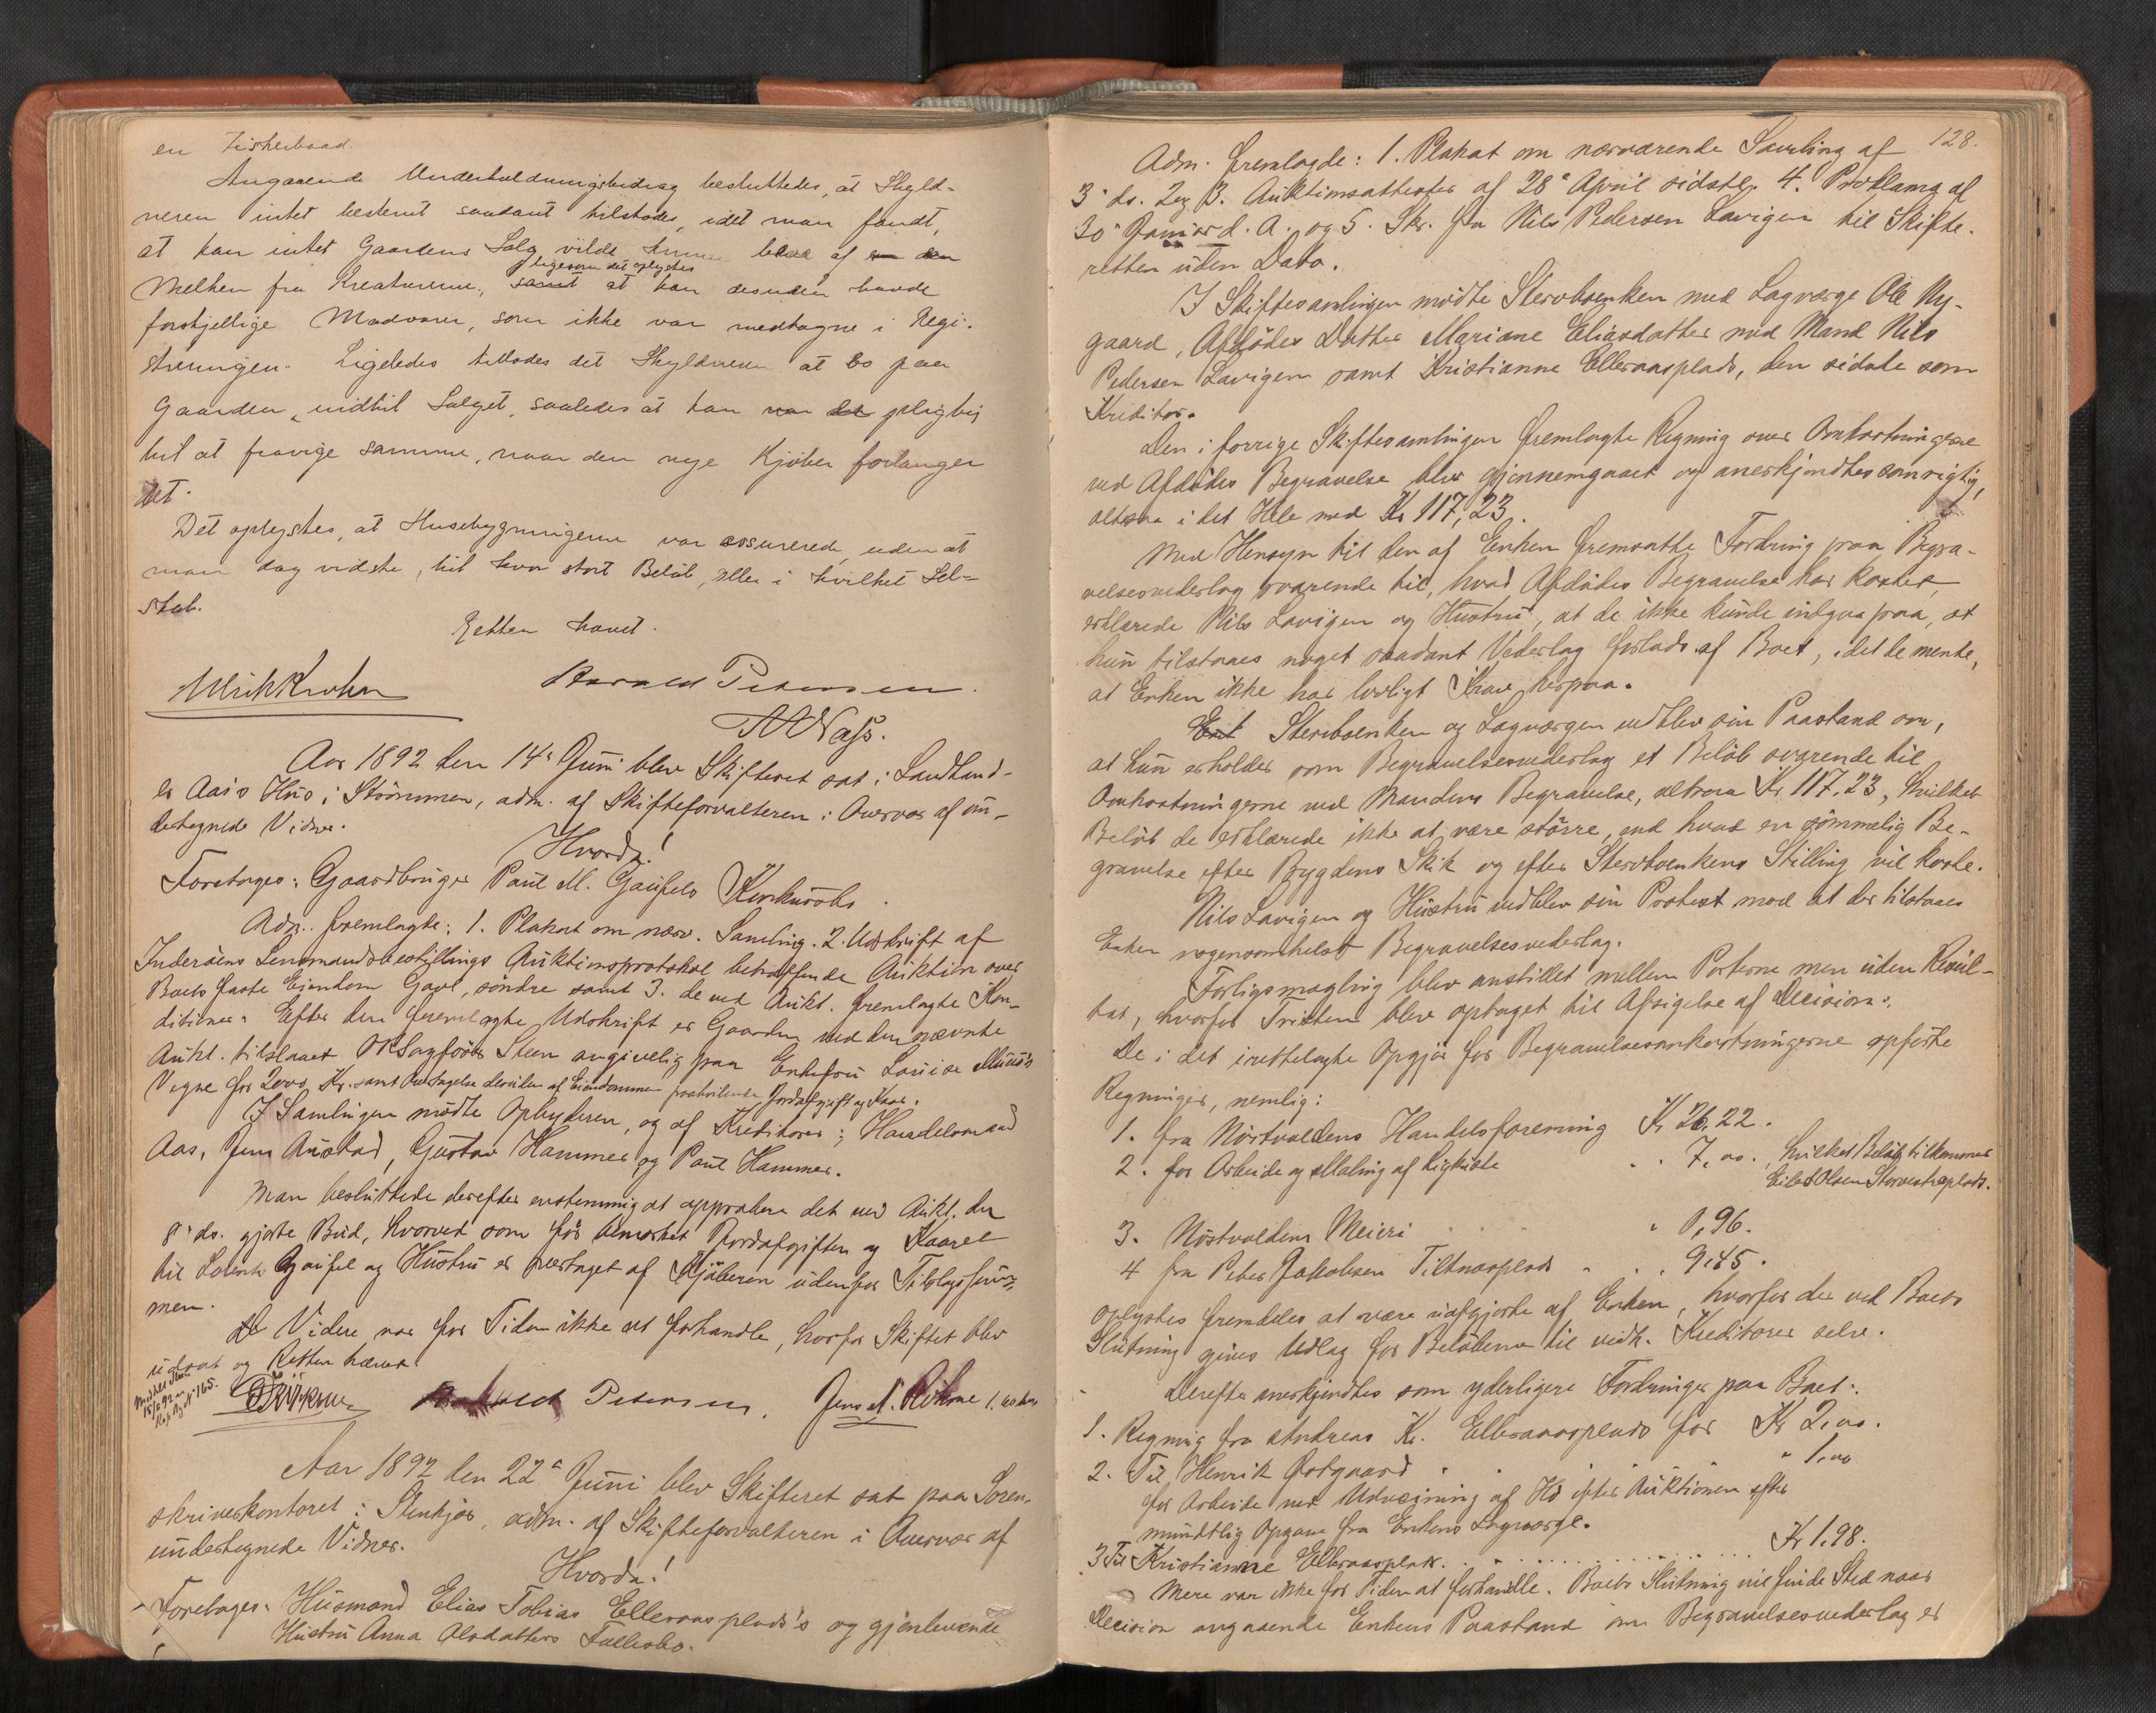 en Fiskerbaad.
Angaaende Underholdningsbidrag besluttedes, at Skyld-
neren intet bestemt saadant tilstodes, idet man fandt,
at han intet Gaardens Salg vilde kunne leve af den
ligesom det oplystes
Melken fra Kreaturene, samt at han desuden havde
forskjellige Madvarer, som ikke var medtagne i Regi-
streringen. Ligeledes tillodes det Skyldneren at bo paa
Gaarden indtil Salget, saaledes at han var pligtig
til at fravige samme, naar den nye Kjøber forlanger
det.
Det oplystes, at Husebygningerne var assurerede, uden at
man dog vidste, til hvor stort Beløb, eller i hvilket Sel-
skab.
Retten hævet.
Ulrik Krohn Harald Petersen.
Aar 1892 den 14de Juni blev Skifteret sat i Landhand-
ler Aas's Hus i Strømmen, adm. af Skifteforvalteren i Overvær af un-
dertegnede Vidner.
Hvorda!
Foretoges: Gaardbruger Paul M. Gaufels Konkursbo.
Adm. fremlagte: 1. Plakat om nærv. Samling. 2. Udskrift af
Inderøens Lensmandsbestillings Auktionsprotokol betræffende Auktion over
Boets faste Eiendom Gavl, søndre samt 3. de ved Aukt. fremlagte Kon-
ditioner. Efter den fremlagte Udskrift er Gaarden ved den nævnte
Aukt. tilslaaet ORSagfører Steen angivelig paa Enkefru Louise Muus's
Vegne for 2000 Kr. samt Overtagelse desuden af Eiendommen paahvilende Jordafgift og Kaar.
I Samlingen mødte Opbyderen, og af Kreditorer: Handelsmand
Aas, Jens Austad, Gustav Hammer og Paul Hammer.
Man besluttede derefter enstemmig at approbere det ved Aukt. den
8de ds. gjorte Bud, hvorved som før bemærket Jordafgiften og Kaaret
til Lorents Gaufel og Hustru er overtaget af Kjøberen udenfor Tilslagssum-
men.
Videre var for Tiden ikke at forhandle, hvorfor Skiftet blev
udsat og Retten hævet.
Harald Petersen. Jens A.
Aar 1892 den 22de Juni blev Skifteret sat paa Soren-
skriverkontoret i Stenkjær, adm. af Skifteforvalteren i Overvær af
undertegnede Vidner.
Hvorda!
Foretoges: Husmand Elias Tobias Elleraasplads's og gjenlevende
Hustru Anna Olsdatters Fællesbo.
128.
Adm. fremlagde: 1. Plakat om nærværende Samling af
3die ds. 2 og 3. Auktionsattester af 28de April sidstl. 4. Proklama af
30te Januar d. A. og 5. Skr. fra Nils Pedersen Lavigen til Skifte-
retten uden Dato.
I Skiftesamlingen mødte Stervboenken med Lagværge Ole Ny-
gaard, Afdødes Datter Mariane Eliasdatter med Mand Nils
Pedersen Lavigen samt Kristianne Elleraasplads, den sidste som
Kreditor.
Den i forrige Skiftesamlingen fremlagte Regning over Omkostningerne
ved Afdødes Begravelse blev gjennemgaaet og anerkjendtes som rigtig,
altsaa i det Hele med Kr 117,23.
Med Hensyn til den af Enken fremsatte Fordring paa Begra-
velsesvederlag svarende til, hvad Afdødes Begravelse har kostet,
erklærede Nils Lavigen og Hustru, at de ikke kunde indgaa paa, at
hun tilstaaes noget saadant Vederlag forlods af Boet, idet de mente,
at Enken ikke har lovligt Krav herpaa.
Stervboenken og Lagværgen vedblev sin Paastand om,
at hun erholder som Begravelsesvederlag et Beløb svarende til
Omkostningerne ved Mandens Begravelse, altsaa Kr 117.23, hvilket
Beløb de erklærede ikke at være større, end hvad en sømmelig Be-
gravelse efter Bygdens Skik og efter Stervboenkens Stilling vil koste.
Nils Lavigen og Hustru vedblev sin Protest mod at der tilstaaes
Enken nogensomhelst Begravelsesvederlag.
Forligsmægling blev anstillet mellem Parterne men uden Resul-
tat, hvorfor Tvisten blev optaget til Afsigelse af Decision.
De i det irettelagte Opgjør for Begravelsesomkostningerne opførte
Regninger, nemlig:
1. fra Nøstvoldens Handelsforening Kr 26,22.
2. for Arbeide og Maling af Ligkiste " 7,00. hvilket Beløb tilkommer
Olsen
3. Nøstvoldens Meieri " 0,96.
4 fra Peter Jakobsen Tiltnesplads " 9,85.
oplystes fremdeles at være udgjorte af Enken, hvorfor der ved Boets
Slutning gives Udlag for Beløbene til vedk. Kreditorer selv.
Derefter anerkjendtes som yderligere Fordringer paa Boet:
1. Regning fra Andreas Kr. Elleraasplads for Kr 2,00.
2. Til Henrik " 1,00
for Arbeide ved Udveining af Hø efter Auktionen efter
mundtlig Opgave fra Enkens Lagværge.
3 Til Kristianne Elleraasplads. Kr 1,98.
Mere var ikke for Tiden at forhandle. Boets Slutning vil finde Sted naar
Decision angaaende Enkens Paastand om Begravelsesvederlag er